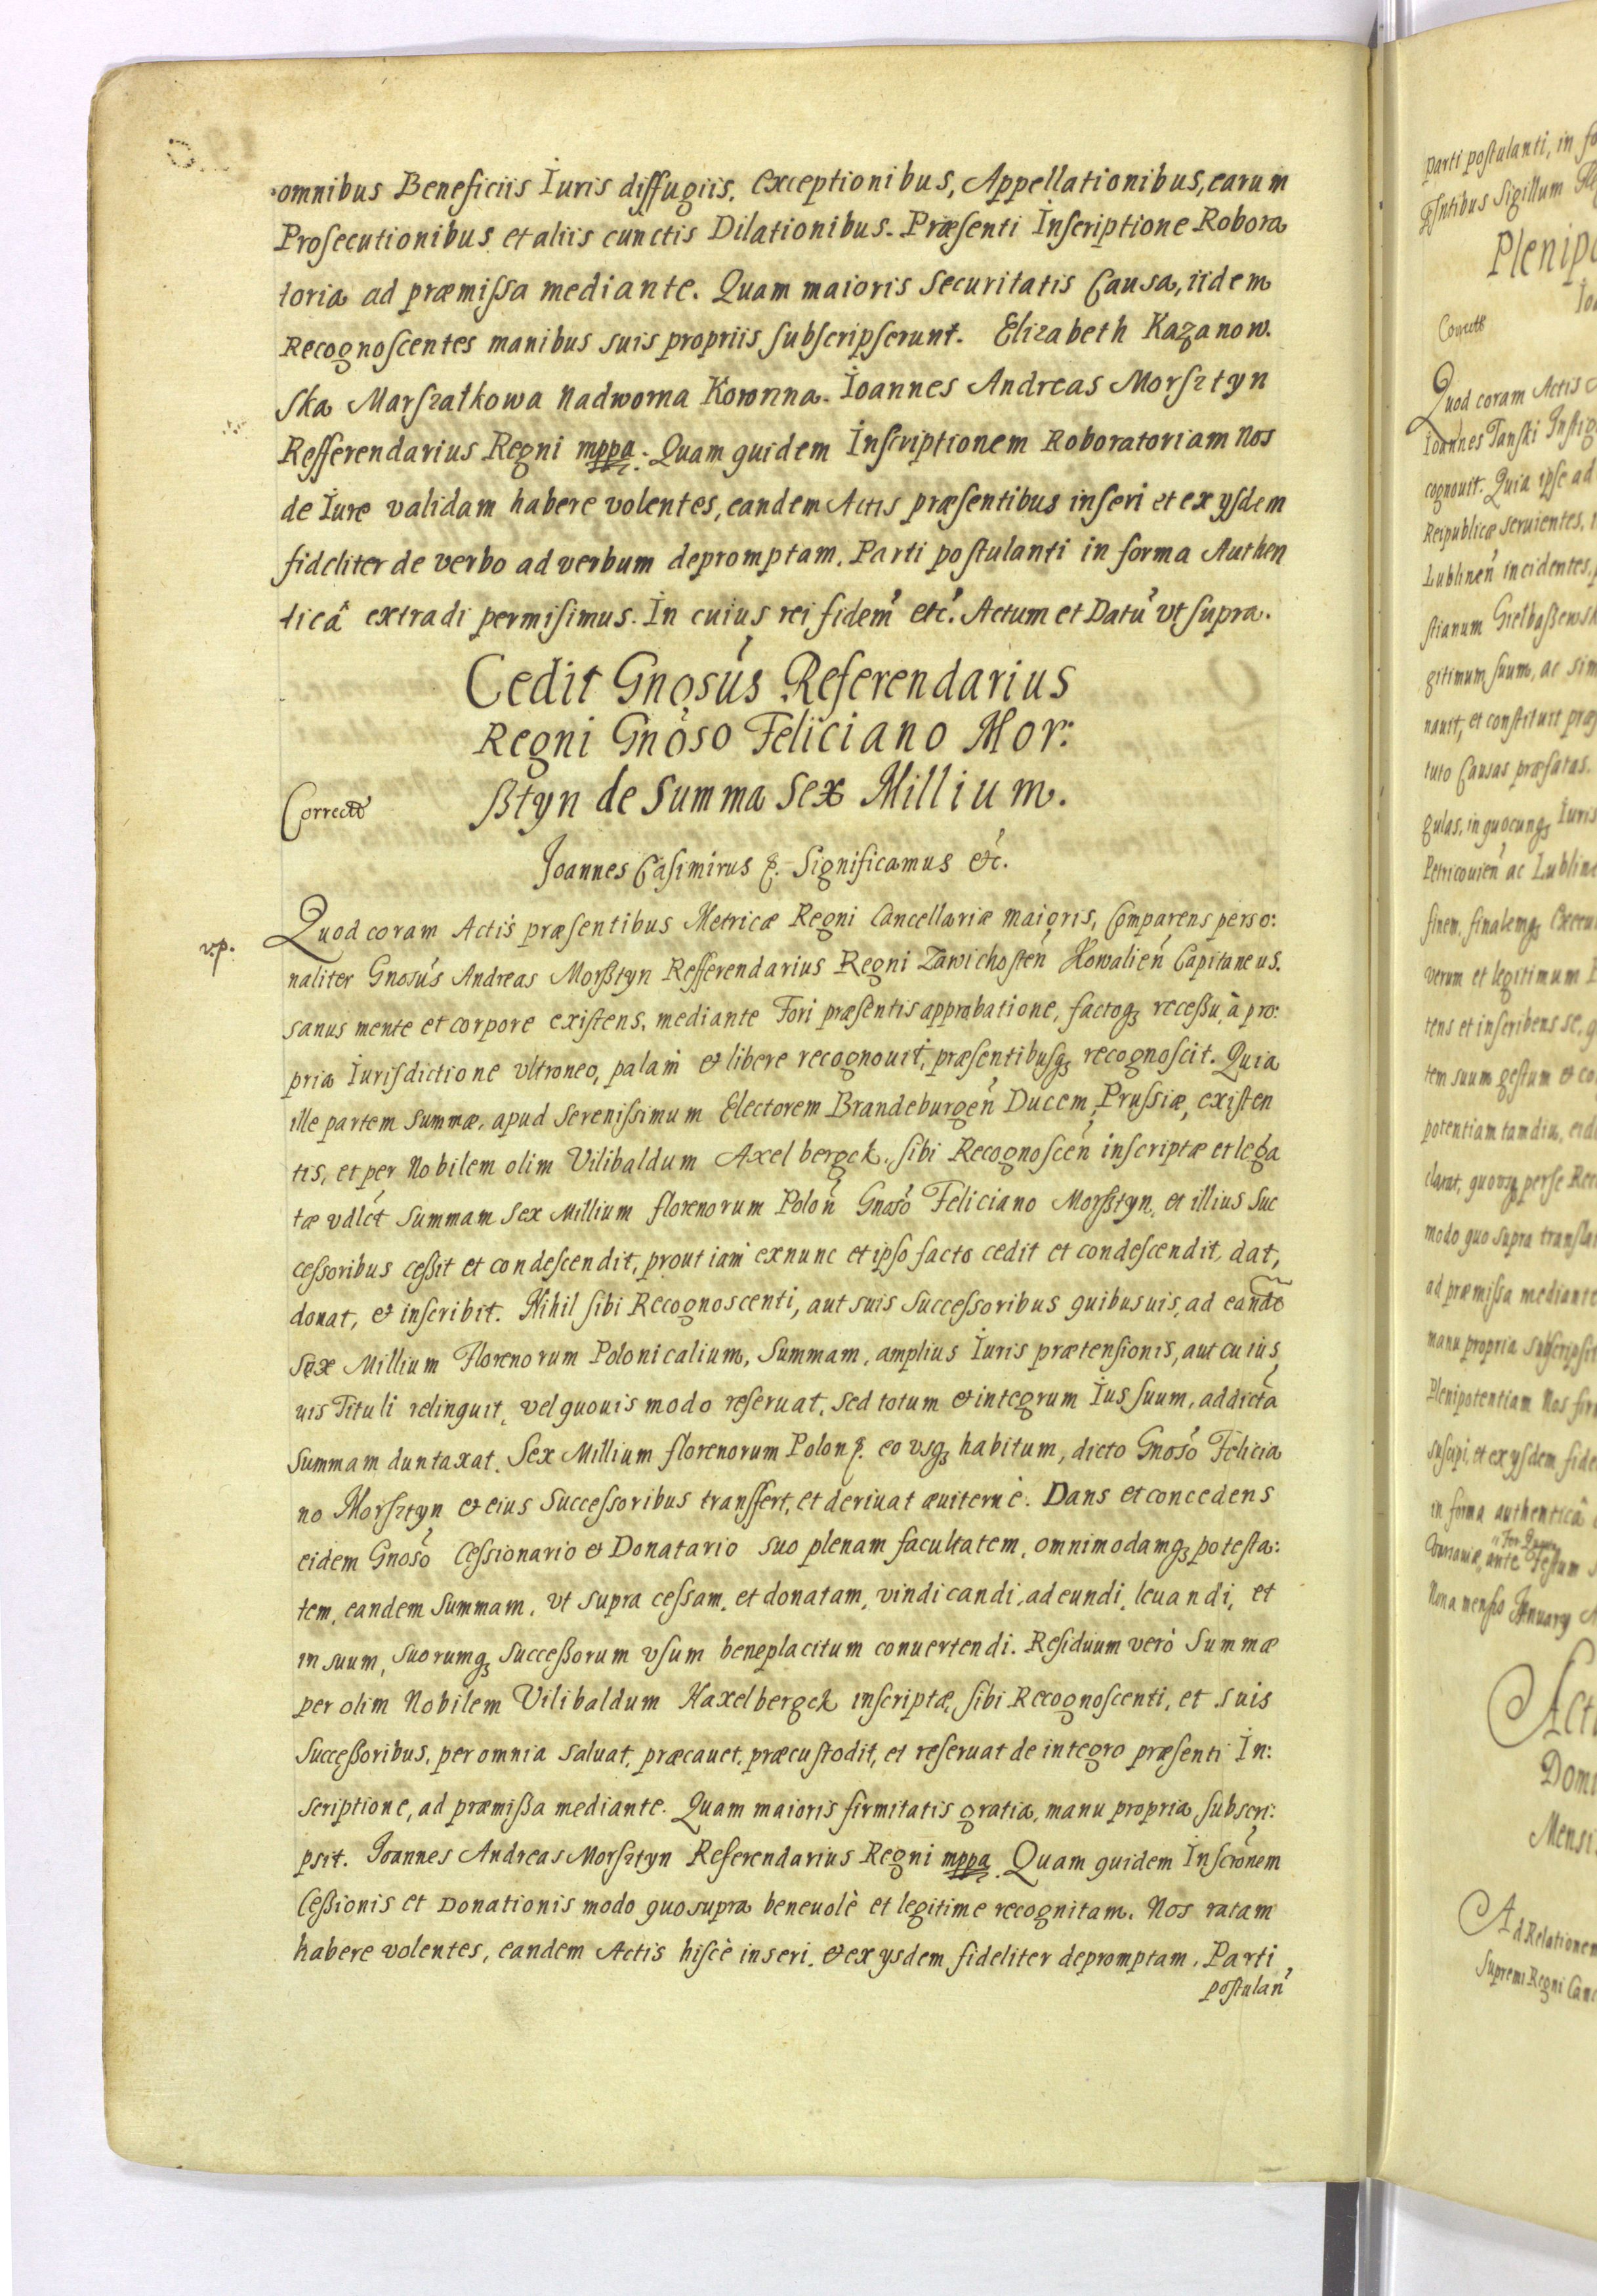 omnibus Beneficiis Iuris diffugiis, exceptionibus, Appellationibus, earum
Prosecutionibus et aliis cunctis Dilationibus. Præsenti Inscriptione Robora
toria ad præmissa mediante. Quam maioris securitatis Causa, iidem
Recognoscentes manibus suis propriis subscripserunt. Elizabeth Kazanow.
ska Marszałkowa Nadworna Koronna. Ioannes Andreas Morsztyn
Refferendarius Regni mppa. Quam quidem Inscriptionem Roboratoriam Nos
de Iure validam habere volentes, eandem Actis præsentibus inseri et ex ysdem
fideliter de verbo ad verbum depromptam, Parti postulanti in forma Authen
ticâ extradi permisimus. In cuius rei fidem etc. Actum et Datu vt supra.
Cedit Gnosus Referendarius
Regni Gnoso Feliciano Mor:
ßtyn de Summa Sex Millium.
Correcte
Joannes Casimirus &. Significamus &c.
v.p.
Quod coram Actis præsentibus Metricæ Regni Cancellariæ maioris, Comparens perso:
naliter Gnosus Andreas Morßtyn Refferendarius Regni Zawichosten Kowalien Capitaneus.
sanus mente et corpore existens, mediante Fori præsentis approbatione, factoq; recessu, à pro:
pria Iurisdictione vltroneo, palam & libere recognouit, præsentibusq; recognoscit. Quia
ille partem summæ, apud Serenissimum Electorem Brandeburgen Ducem Prussiæ, existen
tis, et per Nobilem olim Vilibaldum Axel bergck, sibi Recognoscen inscriptæ et lega
tæ vdlct summam sex Millium florenorum Polon Gnoso Feliciano Morßtyn, et illius Suc
cessoribus cessit et condescendit, prout iam exnunc et ipso facto cedit et condescendit, dat,
donat, & inscribit. Nihil sibi Recognoscenti, aut suis Successoribus quibusuis, ad eande
sex Millium Florenorum Polonicalium, Summam, amplius Iuris prætensionis, aut cuius
uis Tituli relinquit, vel quouis modo reseruat, sed totum & integrum Ius suum, ad dicta
Summam duntaxat. Sex Millium florenorum Polon &. eo vsq; habitum, dicto Gnoso Felicia
no Morsztyn & eius Successoribus transfert, et deriuat æuiternè. Dans et concedens
eidem Gnoso Cessionario & Donatario suo plenam facultatem, omnimodamq; potesta:
tem, eandem Summam, vt supra cessam, et donatam, vindicandi, adeundi, leuandi, et
in suum, suorumq; Successorum vsum beneplacitum conuertendi. Residuum verò Summæ
per olim Nobilem Vilibaldum Haxelbergck inscriptæ, sibi Recognoscenti, et suis
Successoribus, per omnia saluat, præcauet, præcustodit, et reseruat de integro præsenti In:
scriptione, ad præmissa mediante. Quam maioris firmitatis gratia, manu propria, subscri:
psit. Joannes Andreas Morsztyn Referendarius Regni mppa Quam quidem Inscronem
Cessionis et Donationis modo quo supra beneuolè et legitime recognitam. Nos ratam
habere volentes, eandem Actis hisce inseri, & ex ysdem fideliter depromptam, Parti
postulan
parti postulanti, in
Sigillum
Correcte
Quod coram Actis
Ioannes Tanski
cognouit. Quia ipse ad
Reipublicæ seruientes,
Lublinen incidentes,
stianum
gitimum suum, ac
nauit, et constituit
tuto Causas præfatas.
gulas, in quocunq; Iuris
ac
finem, finalemq;
verum et legitimum
tens et inscribens se,
tem suum gestum & co
potentiam tamdiu,
per se
modo quo supra
ad præmissa mediante
manu propria subscripsit
Plenipotentiam Nos
suscipi, et ex ysdem
in forma authenticâ
ante Festum
Nona mensis January
Mensi
Ad Relationem
Supremi Regni